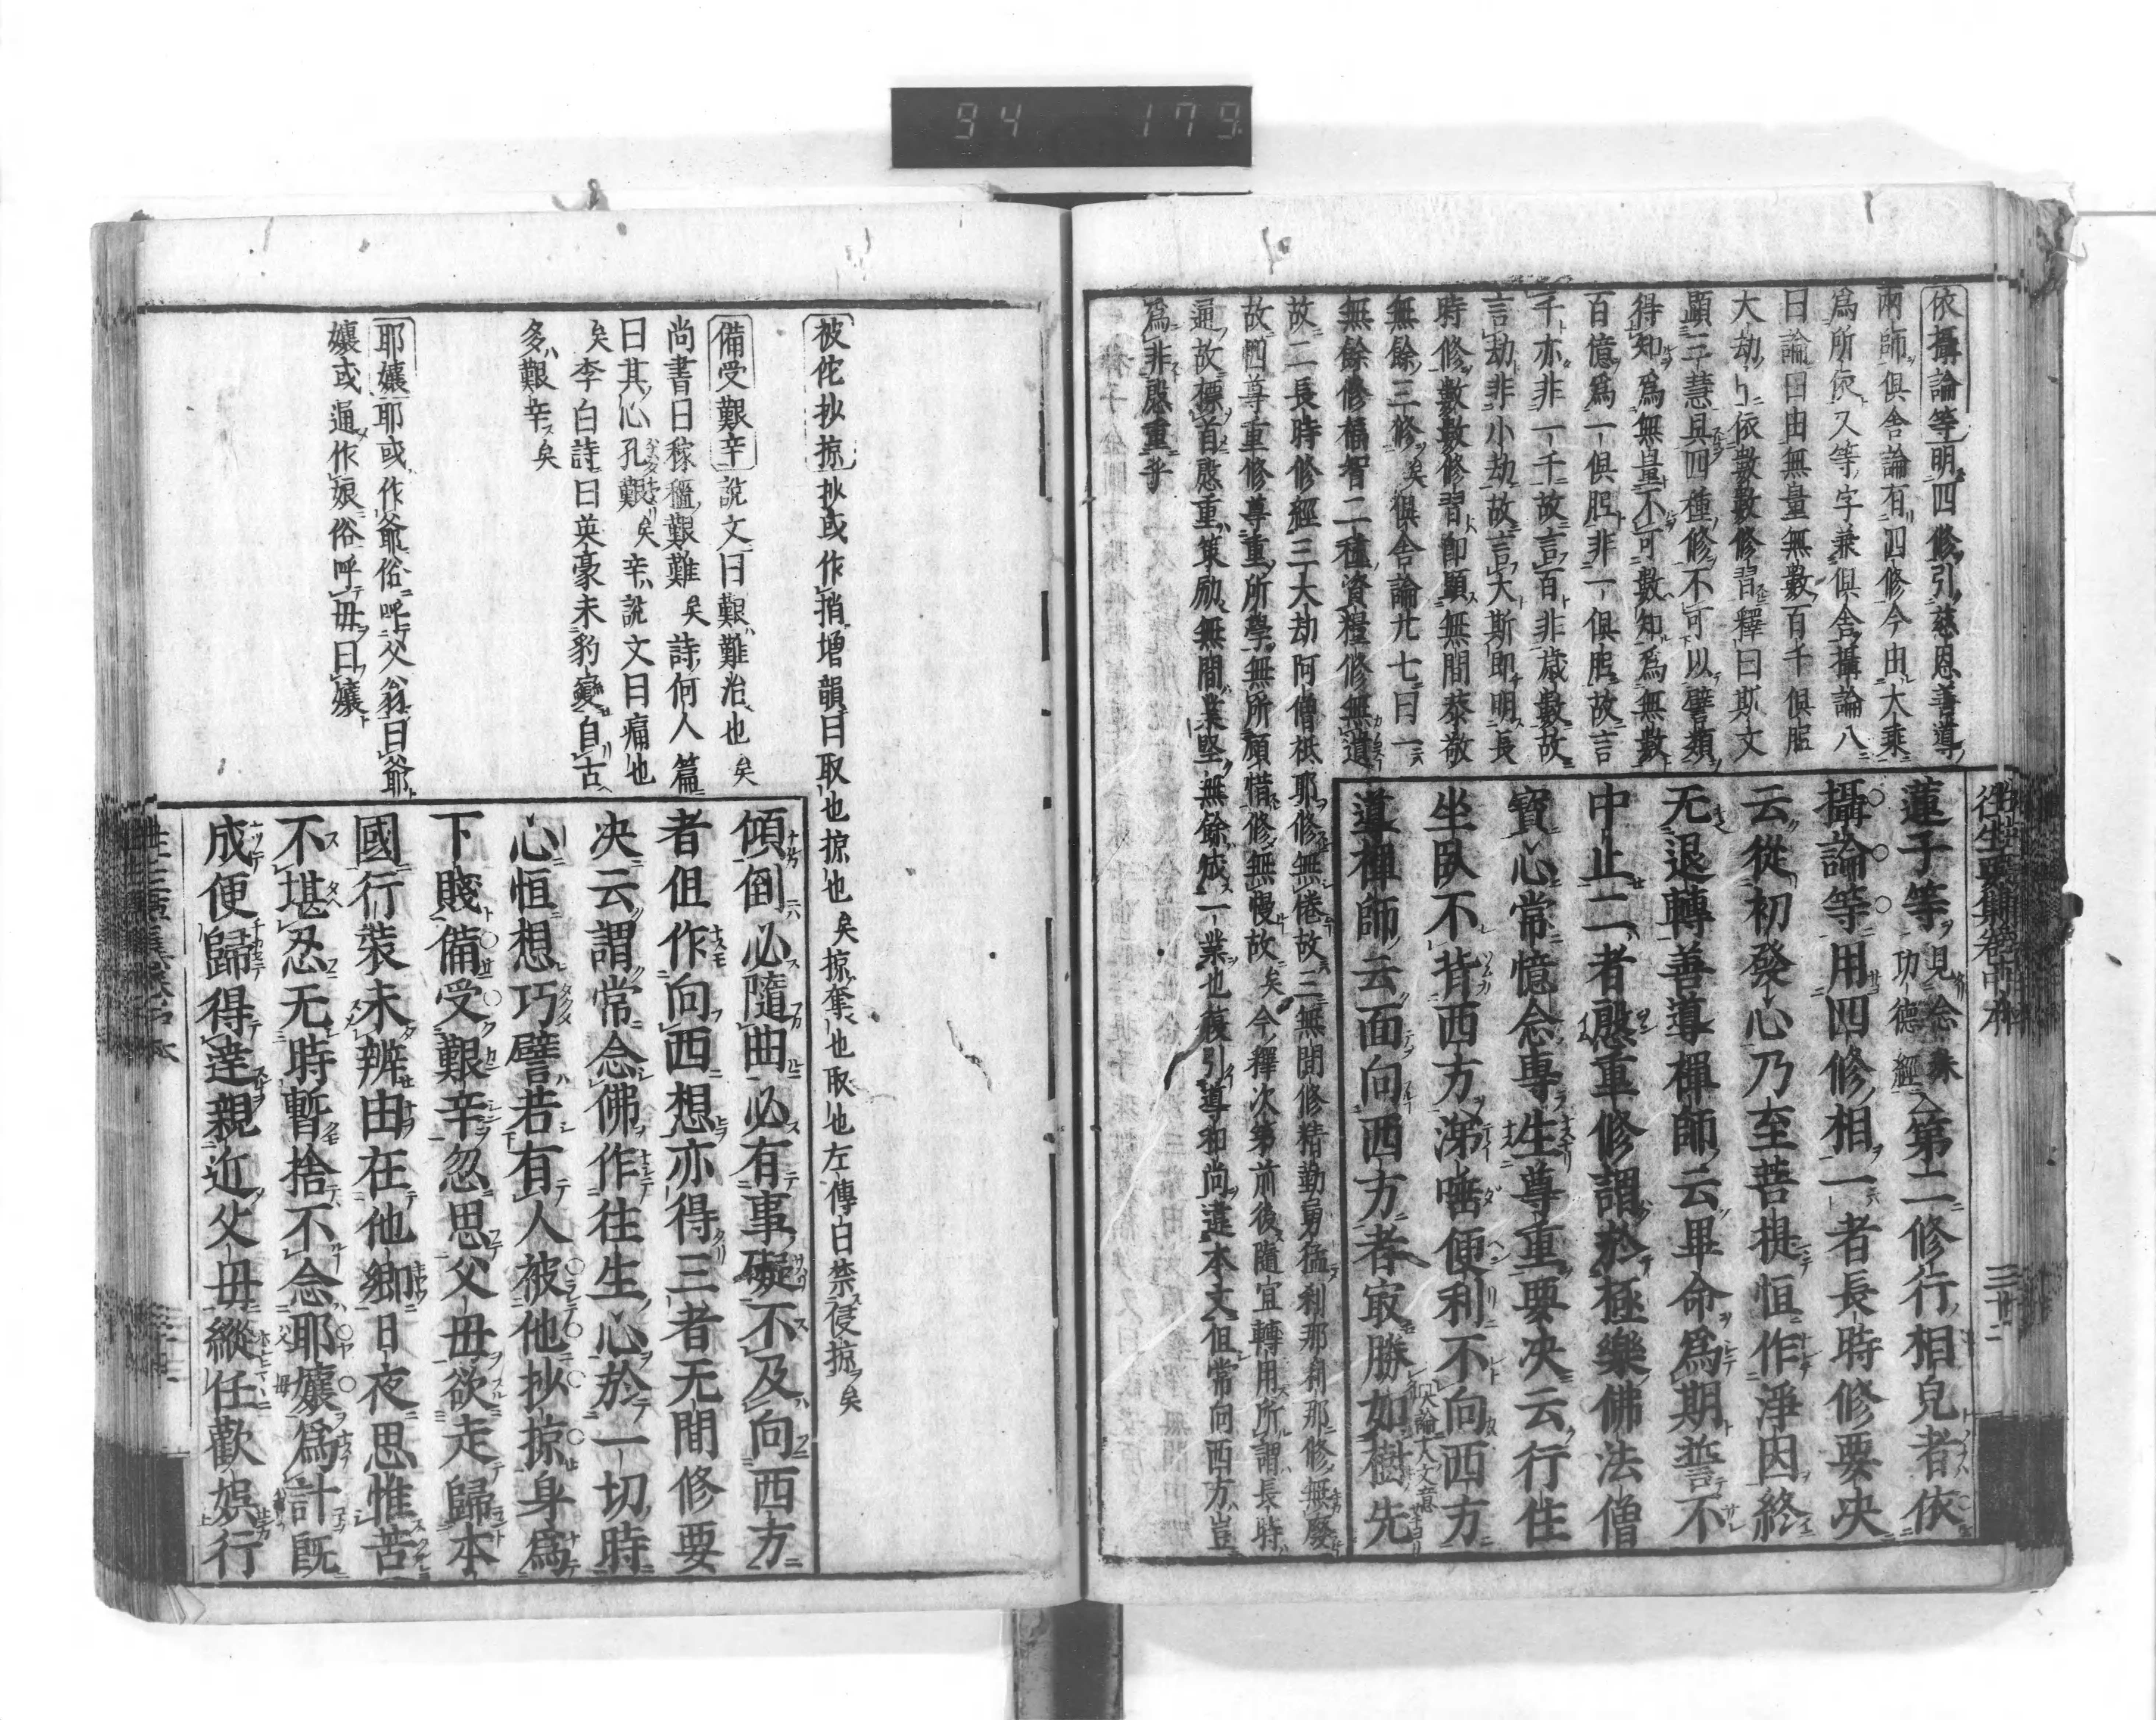 94 179
往生要集卷中本
依攝論等明四修引慈恩善導
兩師俱舍論有四修今由大乘
爲所依又等字兼俱舍攝論八
曰論曰由無量無數百千俱胝
大劫乃至依數數修習釋曰斯文
顯三慧具四種修不可以譬類
得知爲無量不可數知爲無數
百億爲一俱胝非一俱胝故言
千亦非一千故言百非歲數故
言劫非小劫故言大斯即明長
時修數數修習即顯無間恭敬
無餘三修矣俱舍論廿七曰一
無餘修福智二種資糧修無遺
故二長時修經三大劫阿僧祇耶修無倦故三無間修精勤勇猛刹那刹那修無廢
故四尊重修尊重所學無所顧惜修無慢故矣今釋次第前後隨宜轉用所謂長時
遍故標首慇重策勵無間業堅無餘成一業也後引導和尚違本文但常向西方豈
爲非慇重乎
蓮子等見念珠功德經第二修行相皃者依
攝論等用四修相一者長時修要决
云從初發心乃至菩提恒作淨因終
无退轉善導禪師云畢命爲期誓不
中止二者慇重修謂於極樂佛法僧
寳心常憶念專生尊重要决云行住
坐臥不背西方涕唾便利不向西方
導禪師云面向西方者㝡勝如樹先
被佗抄掠抄或作捎增韻曰取也掠也矣掠奪也取也左傳曰禁侵掠矣
備受艱辛說文曰艱難治也矣
尚書曰稼穡艱難矣詩何人篇
曰其心孔艱矣辛說文曰痛也
矣李白詩曰英豪未豹變自古
多艱辛矣
耶孃耶或作爺俗呼父翁曰爺
孃或通作娘俗呼母曰孃
傾倒必隨曲必有事礙不及向西方
者但作向西想亦得三者无間修要
决云謂常念佛作往生心於一切時
心恒想巧譬若有人被他抄掠身爲
下賤備受艱辛忽思父母欲走歸本
國行裝未辨由在他鄉日夜思惟苦
不堪忍无時暫捨不念耶孃爲計既
成便歸得達親近父母縱任歡娯行